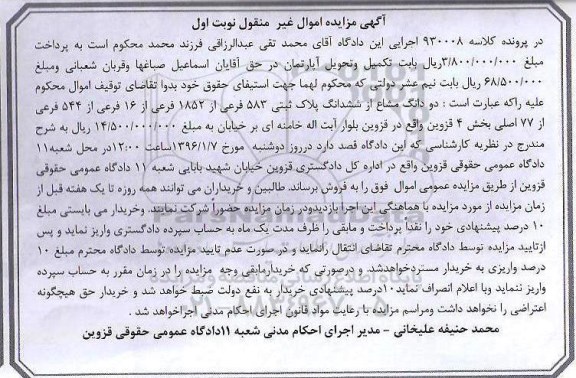 آگهی مزایده اموال غیر منقول نوبت اول
در پرونده کلاسه ۹۳۰۰۰۸ اجرایی این دادگاه آقای محمد تقی عبدالرزاقی فرزند محمد محکوم است به پرداخت
مبلغ ۳/۸۰۰/۰۰۰/۰۰۰ریال بابت تکمیل وتحویل آپارتمان در حق آقایان اسماعیل صباغها وقربان شعبانی ومبلغ
۶۸/۵۰۰/۰۰۰ ریال بابت نیم عشر دولتی که محکوم لهما جهت استیفای حقوق خود بدوا تقاضای توقیف اموال محکوم
علیه راکه عبارت است : دو دانگ مشاع از ششدانگ پلاک ثبتی ۵۸۳ فرعی از ۱۸۵۲ فرعی از ۱۶ فرعی از ۵۴۴ فرعی
از ۷۷ اصلی بخش ۴ قزوین واقع در قزوین بلوار آیت اله خامنه ای بر خیابان به مبلغ ۱۴/۵۰۰/۰۰۰/۰۰۰ ریال به شرح
مندرج در نظریه کارشناسی که این دادگاه قصد دارد درروز دوشنبه مورخ ۱۳۹۶/۱/۷ساعت ۱۲:۰۰در محل شعبه۱۱
دادگاه عمومی حقوقی قزوین واقع در اداره کل دادگستری قزوین خیابان شهید بابایی شعبه ۱۱ دادگاه عمومی حقوقی
قزوین از طریق مزایده عمومی اموال فوق را به فروش برساند. طالبین و خریداران می توانند همه روزه تا یک هفته قبل از
زمان مزایده از مورد مزایده با هماهنگی این اجرا بازدیدودر زمان مزایده حضورا شرکت نمایند. وخریدار می بایستی مبلغ
۱۰ درصد پیشنهادی خود را نقدا پرداخت و مابقی را ظرف مدت یک ماه به حساب سپرده دادگستری واریز نماید و پس
ازتایید مزایده توسط دادگاه محترم تقاضای انتقال رانماید و درصورت عدم تایید مزایده توسط دادگاه محترم مبلغ ۱۰
درصد واریزی به خریدار مستردخواهدشد. و درصورتی که خریدارمابقی وجه مزایده را در زمان مقرر به حساب سپرده
واریز ننماید ویا اعلام انصراف نماید۱۰درصد پیشنهادی خریدار به نفع دولت ضبط خواهد شد و خریدار حق هیچگونه
اعتراضی را نخواهد داشت ومراسم مزایده با رعایت مواد قانون اجرای احکام مدنی اجراخواهد شد .
محمد حنیفه علیخانی - مدیر اجرای احکام مدنی شعبه ۱۱دادگاه عمومی حقوقی قزوین